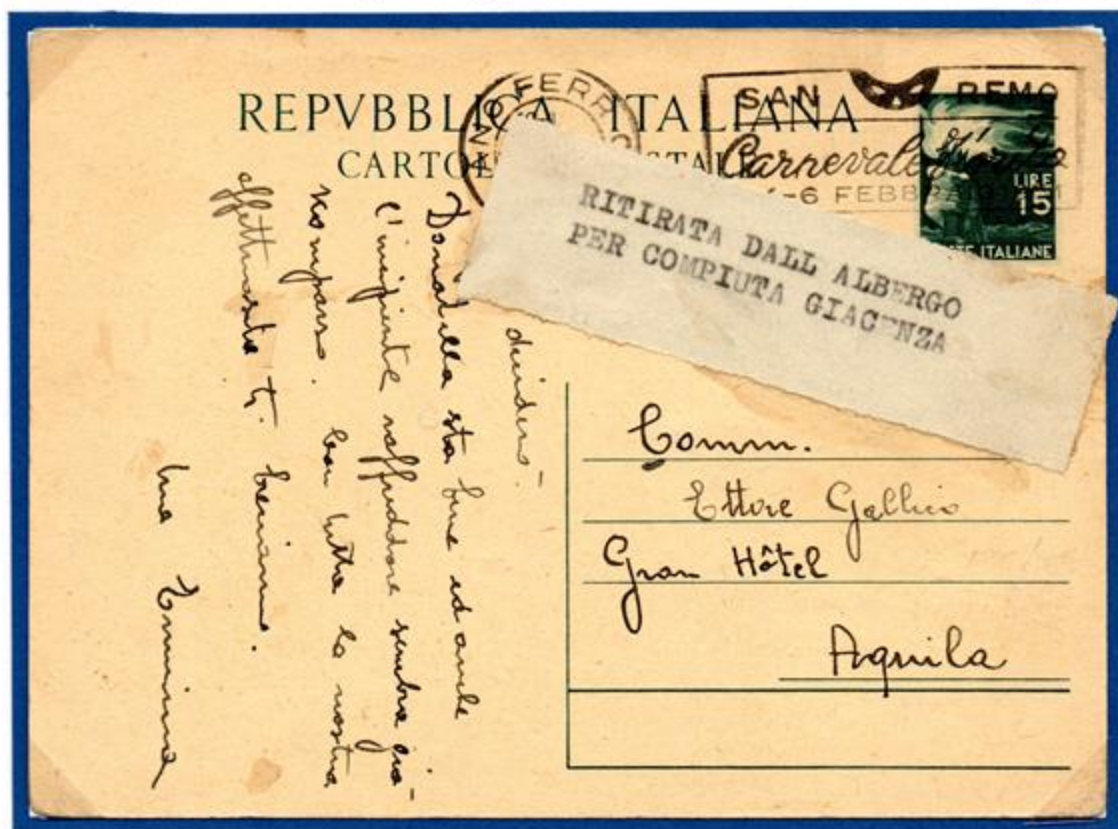 REPVBBLICA ITALIANA
CARTOL STALE
FERR
SAN REMO
Carnevale
-6 FEBB
LIRE
15
STE ITALIANE
RITIRATA DALL ALBERGO
PER COMPIUTA GIACENZA
Comm.
Ettore Gallico
Gran Hôtel
Aquila
desiderò.
Donatella sta bene ed anche
l'incipiente raffreddore sembra già
scomparso. Con tutta la nostra
affettuosità ti baciamo.
tua Emma